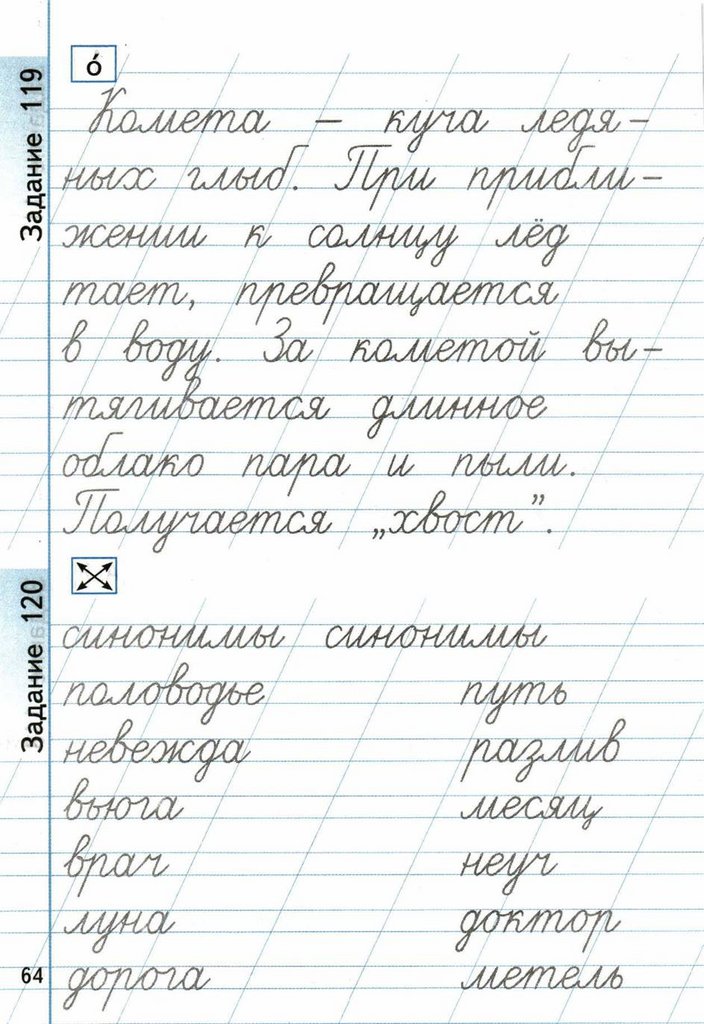 Задание 119
о́
Комета – куча ледя-
ных глыб. При прибли-
жении к солнцу лёд
тает, превращается
в воду. За кометой вы-
тягивается длинное
облако пара и пыли.
Получается „хвост”.
Задание 120
синонимы синонимы
половодье путь
невежда разлив
вьюга месяц
врач неуч
луна доктор
дорога метель
64